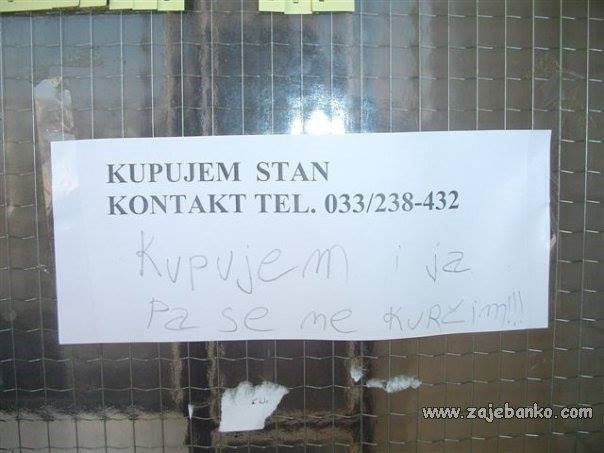 KUPUJEM STAN
KONTAKT TEL. 033/238-432
Kupujem i ja
Pa se ne kurčim!!!
www.zajebanko.com